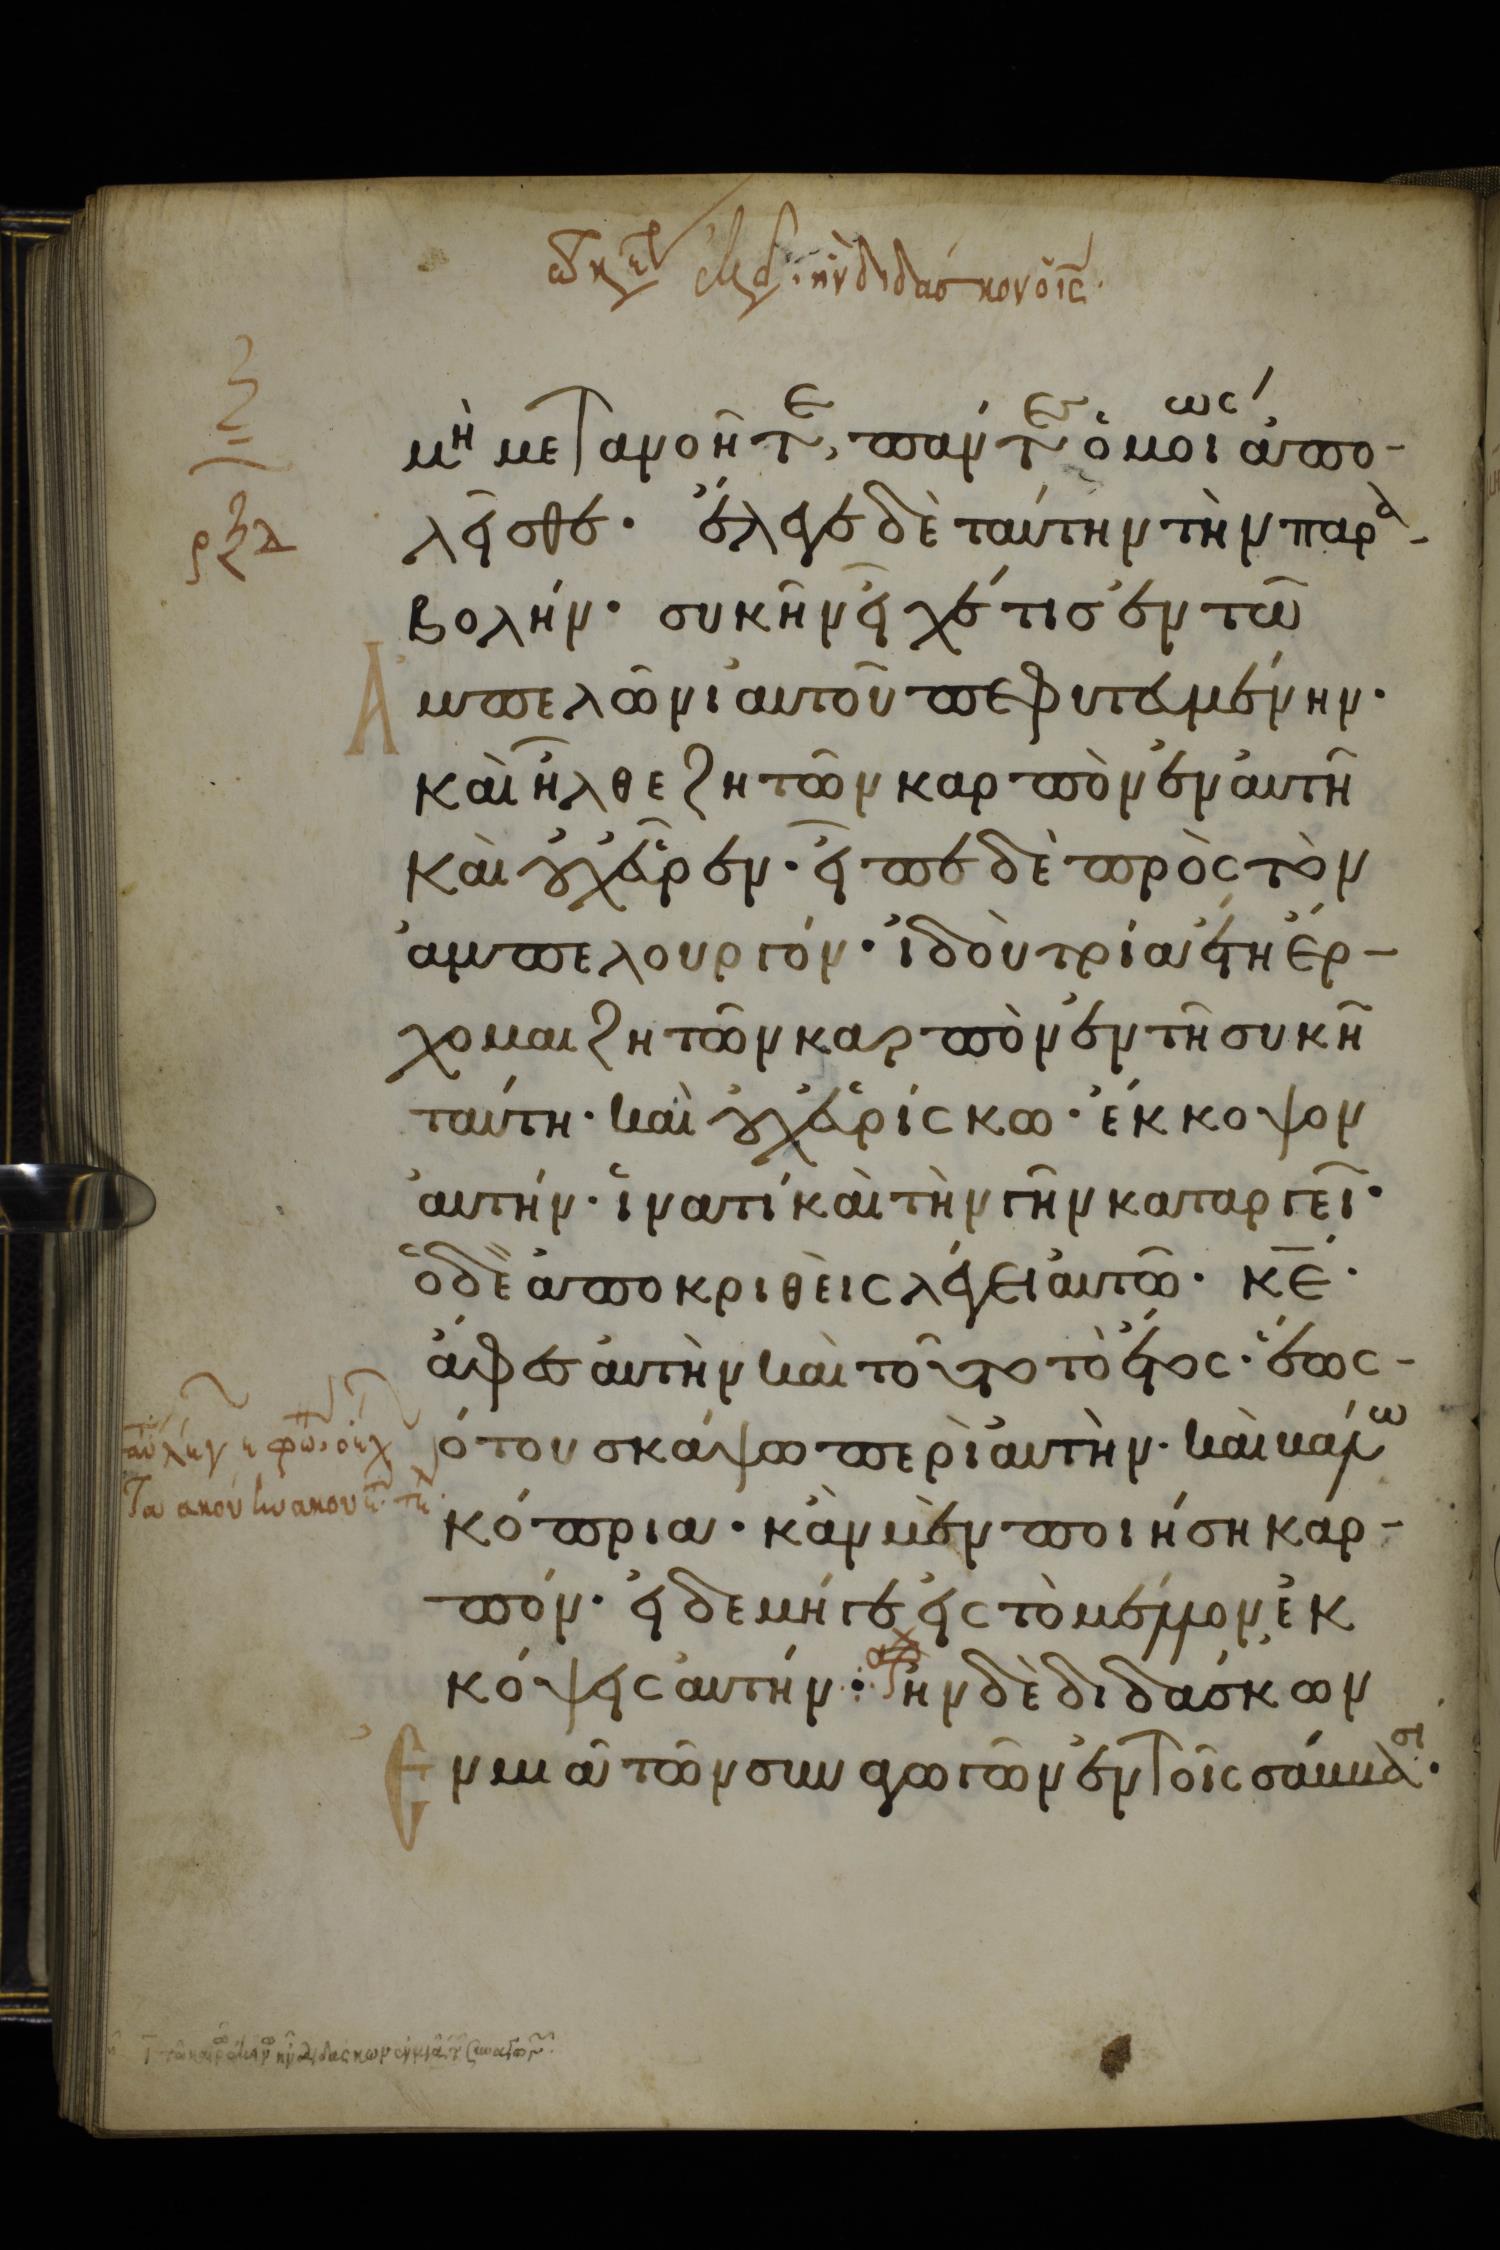 μὴ μετανοῆτε, πάντες ὁμοίως ἀπο-
λεῖσθε. ἔλεγε δὲ ταύτην τὴν παρα-
βολήν. συκῆν εἶχέ τισ ἐν τῶ
Ἀμπελῶνι αὐτοῦ πεφυτευμένην.
καὶ ἦλθε ζητῶν καρπὸν ἐν αὐτῆ
καὶ οὐχ εὗρεν. εἶπε δὲ πρὸς τὸν
ἀμπελουργόν. ἰδοὺ τρία ἔτη ἔρ-
χομαι ζητῶν καρπὸν ἐν τῆ συκῆ
ταύτη. καὶ οὐχ εὑρίσκω. ἔκκοψον
αὐτήν. ἵνα τί καὶ τὴν γῆν καταργεῖ.
ὁ δὲ ἀποκριθεὶς λέγει αὐτῶ. κε.
ἄφεσ αὐτὴν καὶ τοῦτο τὸ ἔτος. ἕως-
ότου σκάψω περὶ αὐτὴν. καὶ βάλω
κόπρια. κἀν μὲν ποιήση καρ-
πόν. εἰ δε μήγε εἰς τὸ μέλλον ἐκ
κόψεις αὐτήν: ἦν δὲ διδάσκων
Ἐν μιᾶ τῶν συναγωγῶν ἐν τοῖς σάββασι.